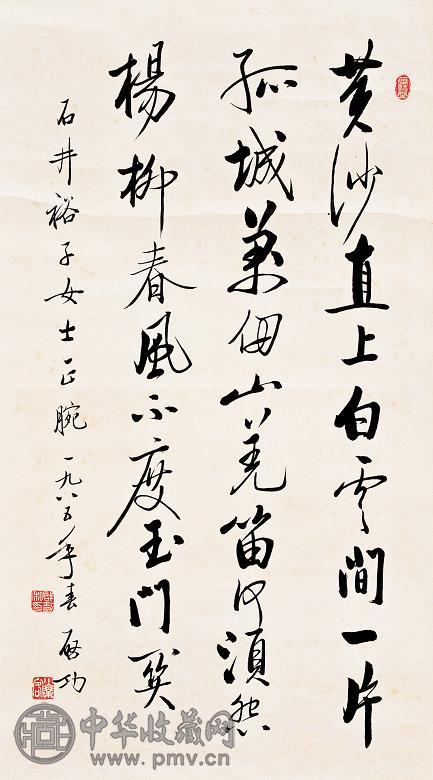 黄沙直上白雲間一片
孤城萬仞山羌笛何須怨
楊柳春風不度玉門關
石井裕子女士正腕一九八五年春 啓功
中华收藏网
www.pmv.cn